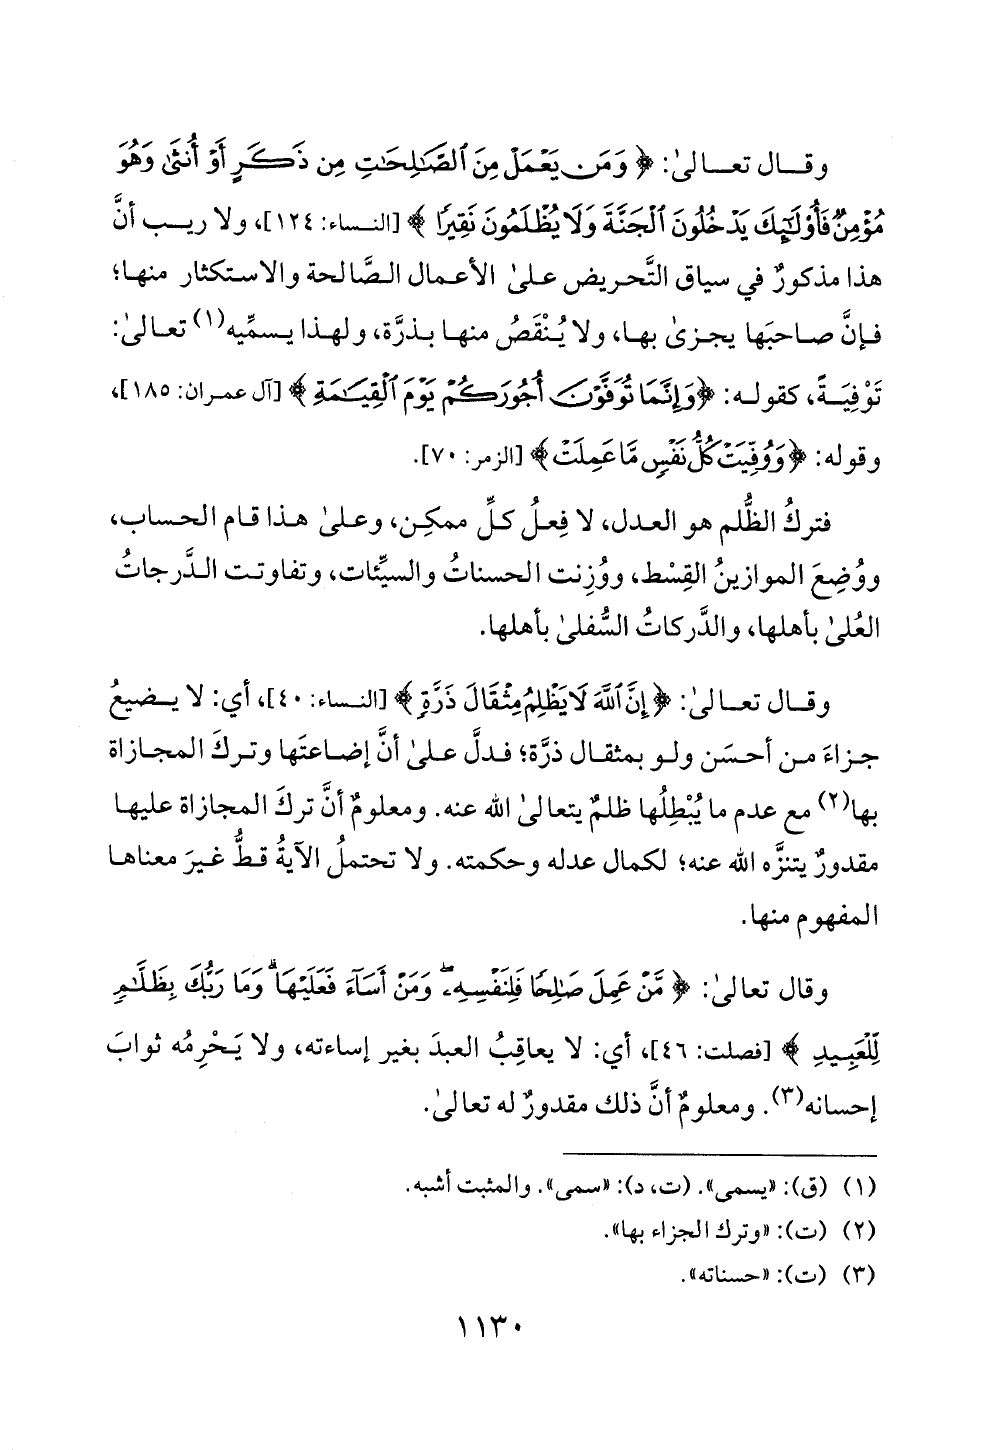 وقال تعالىٰ: ﴿ وَمَن يَعْمَلْ مِنَ ٱلصَّٰلِحَٰتِ مِن ذَكَرٍ أَوْ أُنثَىٰ وَهُوَ
مُؤْمِنٌ فَأُو۟لَٰٓئِكَ يَدْخُلُونَ ٱلْجَنَّةَ وَلَا يُظْلَمُونَ نَقِيرًا ﴾ [النساء: ١٢٤]، ولا ريب أنَّ
هذا مذكورٌ في سياق التَّحريض علىٰ الأعمال الصَّالحة والاستكثار منها؛
فإنَّ صاحبَها يجزىٰ بها، ولا يُنْقَصُ منها بذرَّة، ولهذا يسمِّيه(١) تعالىٰ:
تَوْفِيَةً، كقوله: ﴿وَإِنَّمَا تُوَفَّوْنَ أُجُورَكُمْ يَوْمَ ٱلْقِيَٰمَةِ ﴾ [آل عمران: ١٨٥]،
وقوله: ﴿وَوُفِّيَتْ كُلُّ نَفْسٍ مَّا عَمِلَتْ﴾ [الزمر: ٧٠].
فتركُ الظُّلم هو العدل، لا فِعلُ كلِّ ممكِن، وعلىٰ هذا قام الحساب،
ووُضِعَ الموازينُ القِسْط، ووُزِنت الحسناتُ والسيِّئات، وتفاوتت الدَّرجاتُ
العُلىٰ بأهلها، والدَّركاتُ السُّفلىٰ بأهلها.
وقال تعالىٰ: ﴿ إِنَّ ٱللَّهَ لَا يَظْلِمُ مِثْقَالَ ذَرَّةٍ ﴾ [النساء: ٤٠]، أي: لا يضيعُ
جزاءَ من أحسَن ولو بمثقال ذرَّة؛ فدلَّ علىٰ أنَّ إضاعتَها وتركَ المجازاة
بها(٢) مع عدم ما يُبْطِلُها ظلمٌ يتعالىٰ الله عنه. ومعلومٌ أنَّ تركَ المجازاة عليها
مقدورٌ يتنزَّه الله عنه؛ لكمال عدله وحكمته. ولا تحتملُ الآيةُ قطُّ غيرَ معناها
المفهوم منها.
وقال تعالىٰ: ﴿ مَّنْ عَمِلَ صَٰلِحًا فَلِنَفْسِهِۦۖ وَمَنْ أَسَآءَ فَعَلَيْهَاۗ وَمَا رَبُّكَ بِظَلَّٰمٍ
لِّلْعَبِيدِ ﴾ [فصلت: ٤٦]، أي: لا يعاقِبُ العبدَ بغير إساءته، ولا يَحْرِمُه ثوابَ
إحسانه(٣). ومعلومٌ أنَّ ذلك مقدورٌ له تعالىٰ.
(١) (ق): «يسمى». (ت، د): «سمى». والمثبت أشبه.
(٢) (ت): «وترك الجزاء بها».
(٣) (ت): «حسناته».
١١٣٠